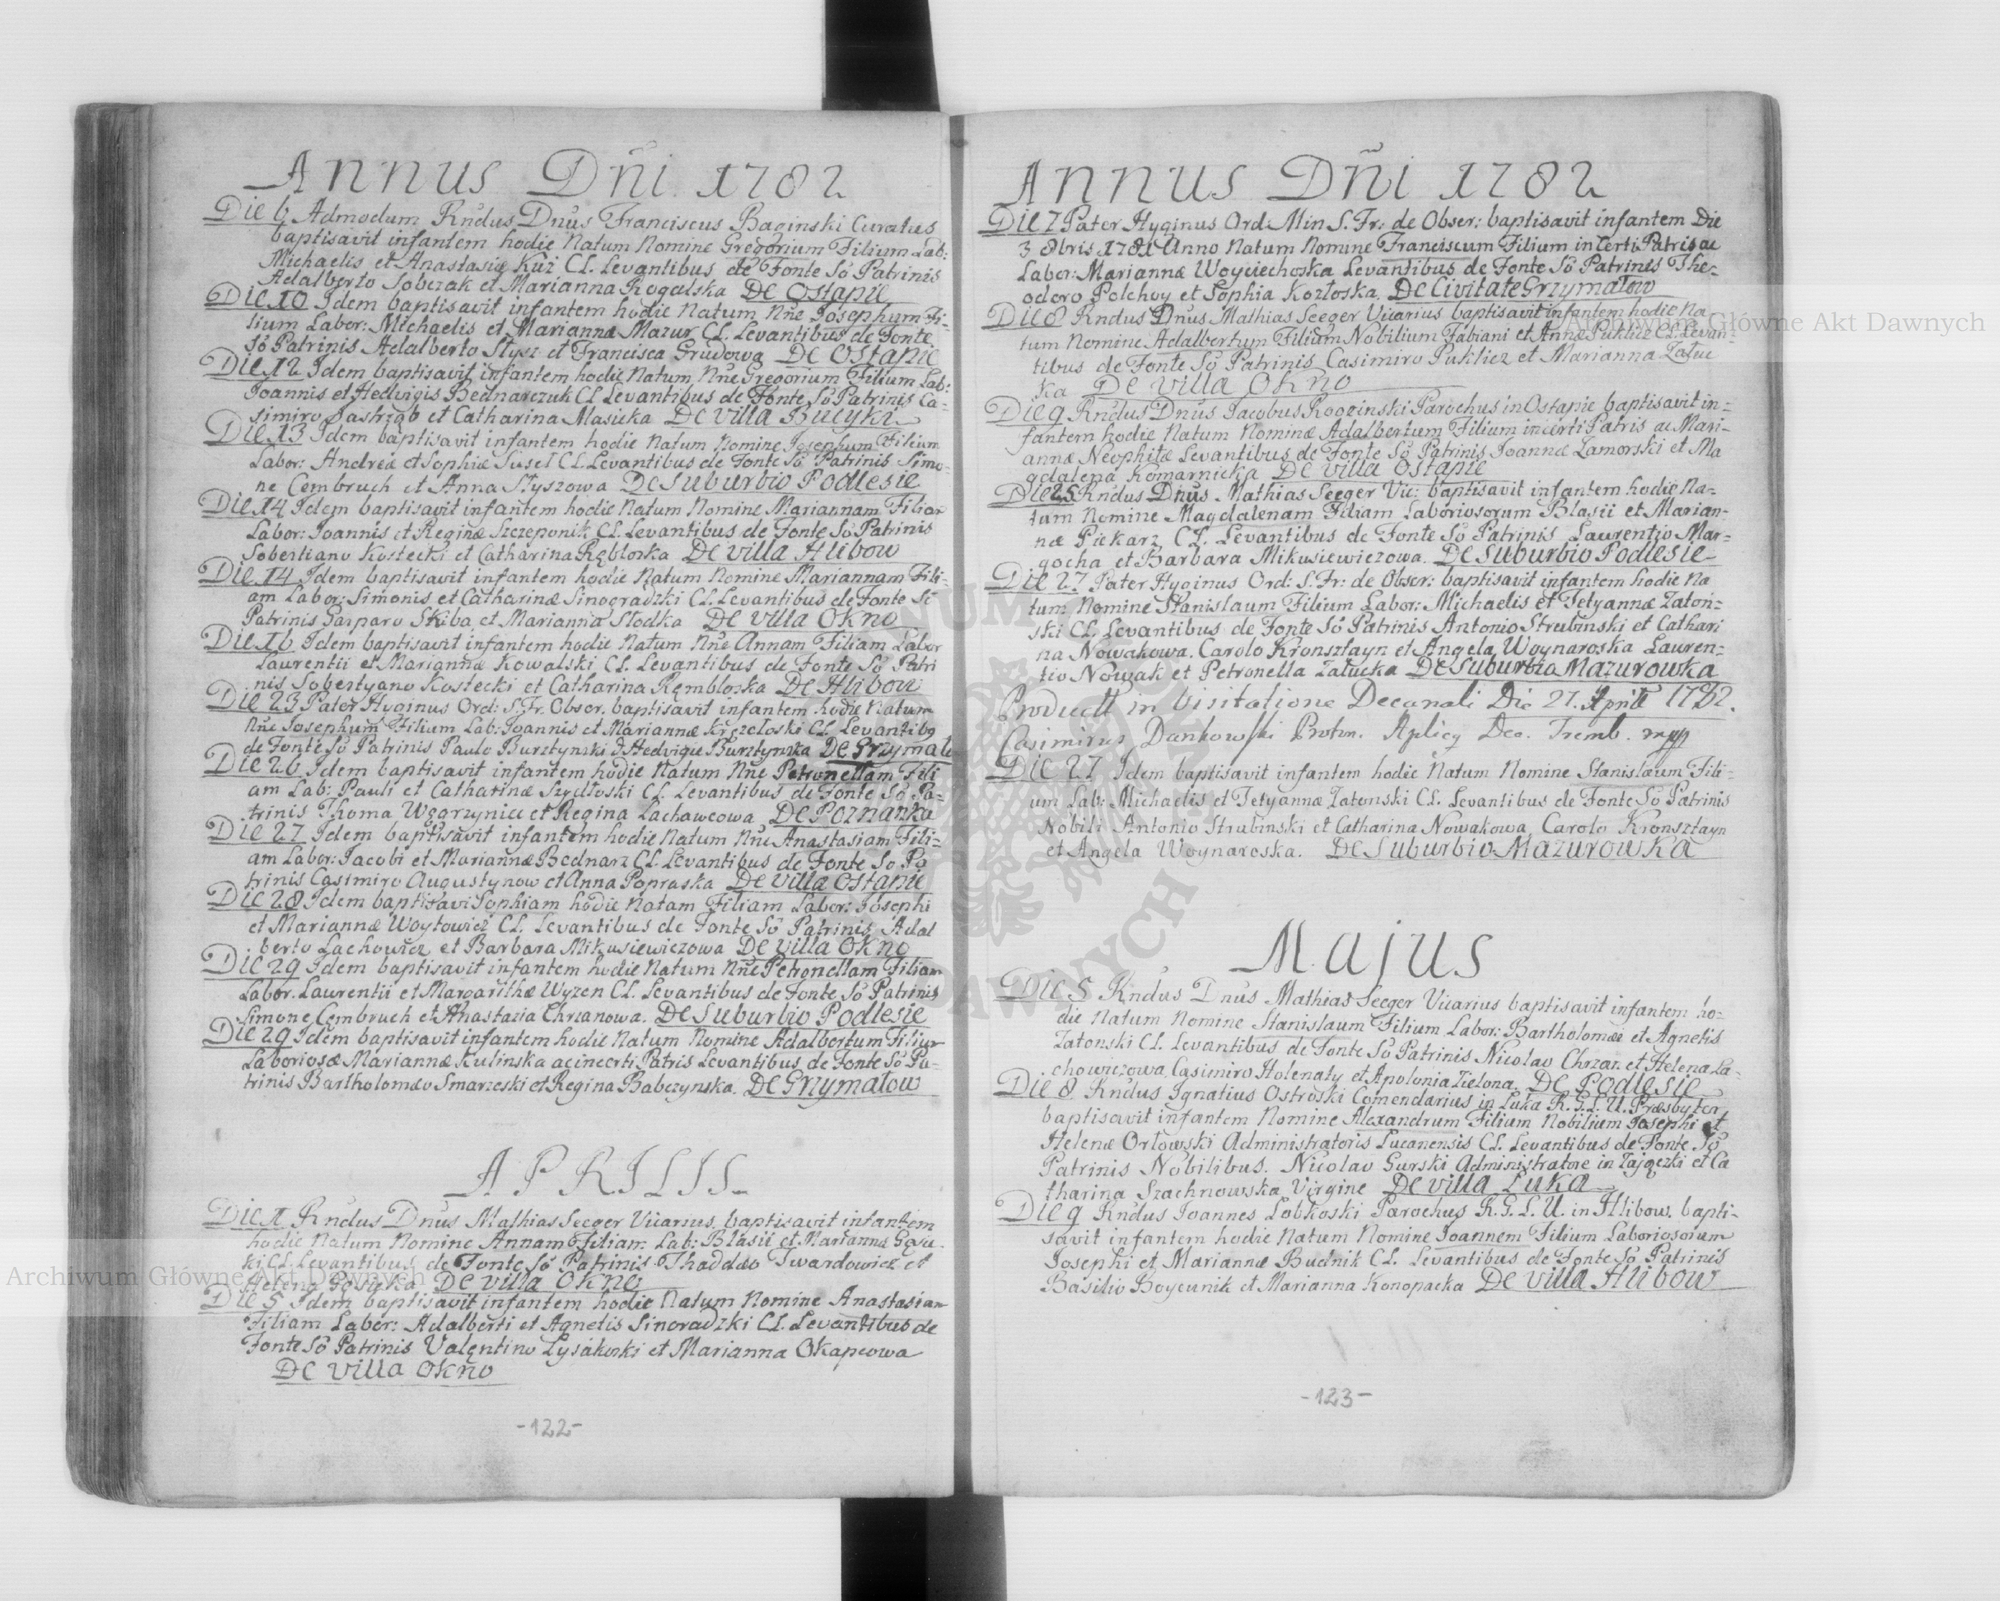 Annus Dñi 1782
Die 6 Admodum Rñdus Dnus Franciscus Baginski Curatus
baptisavit infantem hodie Natum Nomine Gregorium Filium Lab:
Michaelis et Anastasiæ Kuź CL. Levantibus de Fonte So Patrinis
Adalberto Sobczak et Marianna Rogalska De Ostapie
Die 10 Idem baptisavit infantem hodie Natum Nñe Josephum Fi-
lium Labor: Michaelis et Mariannæ Mazur CL. Levantibus de Fonte
So Patrinis Adalberto Stysz et Francisca Grudowa De Ostapie
Die 12 Idem baptisavit infantem hodie Natum Nñe Gregorium Filium Lab:
Joannis et Hedvigis Bednarczuk CL Levantibus de Fonte So Patrinis Ca-
simiro Jastrząb et Catharina Masicka De Villa Bucyki
Die 13 Idem baptisavit infantem hodie Natum Nomine Josephum Filium
Labor: Andreæ et Sophiæ Susel CL Levantibus de Fonte So Patrinis Simo-
ne Cembruch et Anna Styszowa De Suburbio Podlesie
Die 14 Idem baptisavit infantem hodie Natum Nomine Mariannam Filiam
Labor: Joannis et Reginæ Szczeponik CL. Levantibus de Fonte So Patrinis
Sobestiano Kostecki et Catharina Rębloska De Villa Hlibow
Die 14 Idem baptisavit infantem hodie Natum Nomine Mariannam Fili-
am Labor: Simonis et Catharinæ Sinogradzki CL. Levantibus de Fonte So
Patrinis Gasparo Skiba et Marianna Slodka De Villa Okno
Die 16 Idem baptisavit infantem hodie Natum Nñe Annam Filiam Labor
Laurentii et Mariannæ Kowalski CL. Levantibus de Fonte So Patri
nis Sobestyano Kostecki et Catharina Rembloska De Hlibow
Die 23 Pater Hyginus Ord: S. Fr. Obser. baptisavit infantem hodie Natum
Nñe Josephum Filium Lab: Joannis et Mariannæ Krzeloski CL Levantibq
de Fonte So Patrinis Paulo Bursztynski & Hedvigie Bursztynska De Grzymalo
Die 26 Idem baptisavit infantem hodie Natum Nñe Petronellam Fili
am Lab: Pauli et Catharinæ Szydłoski CL. Levantibus de Fonte So Pa-
trinis Thoma Wgorzynicz et Regina Lachawcowa De Poznanka
Die 27 Idem baptisavit infantem hodie Natum Nñe Anastasiam Fili-
am Labor: Jacobi et Mariannæ Bednarz CL Levantibus de Fonte So Pa
trinis Casimiro Augustynow et Anna Popraska De Villa Ostapie
Die 28 Idem baptisavi Sophiam hodie Natam Filiam Labor: Josephi
et Mariannæ Woytowicz CL. Levantibus de Fonte So Patrinis Adal
berto Lachowicz et Barbara Mikusiewiczowa De Villa Okno
Die 29 Idem baptisavit infantem hodie Natum Nñe Petronellam Filiam
Labor. Laurentii et Margarithæ Wyzen CL. Levantibus de Fonte So Patrinis
Simone Cembruch et Anastazia Chrzanowa. De Suburbio Podlesie
Die 29 Idem baptisavit infantem hodie Natum Nomine Adalbertum Filium
Laboriosæ Mariannæ Kulinska ac incerti Patris Levantibus de Fonte So Pa-
trinis Bartholomæo Smarzeski et Regina Babczynska. De Grzymałow
APRILIS
Die 1 Rñdus Dnus Mathias Seeger Vicarius baptisavit infantem
hodie Natum Nomine Annam Filiam Lab: Blasii et Marianna
ki CL. Levantibus de Fonte So Patrinis Thaddæo Twardowicz et
Helena De Villa Okno
Die 5 Idem baptisavit infantem hodie Natum Nomine Anastasiam
Filiam Labor: Adalberti et Agnetis Sinoradzki CL. Levantibus de
Fonte So Patrinis Valentino Lysakoski et Marianna Okapcowa
De Villa Okno
-122-
Annus Dñi 1782
Die 7 Pater Hyginus Ord Min S. Fr: de Obser: baptisavit infantem Die
3 8bris 1781 Anno Natum Nomine Franciscum Filium incerti Patris ac
Labor: Mariannæ Woyciechoska Levantibus de Fonte So Patrinis The-
odoro Polchuy et Sophia Kozłoska. De Civitate Grzymałow
Die 8 Rñdus Dnus Mathias Seeger Vicarius baptisavit infantem hodie Na
tum Nomine Adalbertum Filium Nobilium Fabiani et Annæ Puklicz CL Levan-
tibus de Fonte So Patrinis Casimiro Puklicz et Marianna Załuc
ka De Villa Okno
Die 9 Rñdus Dnus Jacobus Rogozinski Parochus in Ostapie baptisavit in-
fantem hodie Natum Nominæ Adalbertum Filium incerti Patris ac Mari-
annæ Neophitæ Levantibus de Fonte So Patrinis Joannæ Zamorski et Ma
gdalena Komarnicka De Villa Ostapie
Die 25 Rñdus Dnus Mathias Seeger Vic: baptisavit infantem hodie Na-
tam Nomine Magdalenam Filiam Laboriosorum Blasii et Marian-
næ Piekarz CL. Levantibus de Fonte So Patrinis Laurentio Mar-
gocha et Barbara Mikusiewiczowa. De Suburbio Podlesie
Die 27 Pater Hyginus Ord: S. Fr: de Obser: baptisavit infantem hodie Na
tum Nomine Stanislaum Filium Labor: Michaelis et Tetyannæ Zatoń-
ski CL. Levantibus de Fonte So Patrinis Antonio Strubinski et Cathari
na Nowakowa. Carolo Kronsztayn et Angela Woynaroska Lauren-
tio Nowak et Petronella Załucka De Suburbio Mazurowka
Product in Visitatione Decanali Die 27. Aprill 1782.
Casimirus Dunkowski Proton. Aplicg Dec. Tremb. mpp
Die 27 Idem baptisavit infantem hodie Natum Nomine Stanislaum Fili-
um Lab: Michaelis et Tetyannæ Zatonski CL. Levantibus de Fonte So Patrinis
Nobili Antonio Strubinski et Catharina Nowakowa, Carolo Kronsztayn
et Angela Woynaroska. De Suburbio Mazurowka
Majus
Die 5 Rñdus Dnus Mathias Seeger Vicarius baptisavit infantem ho-
die Natum Nomine Stanislaum Filium Labor: Bartholomæ et Agnetis
Zatonski CL Levantibus de Fonte So Patrinis Nicolao Chrzan et Helena La-
chowiczowa, Casimiro Holenaty et Apolonia Zielona. De Podlesie
Die 8 Rñdus Ignatius Ostroski Comendarius in Luka R. G. L. U. Præsbyter
baptisavit infantem Nomine Alexandrum Filium Nobilium Josephi et
Helenæ Orłowski Administratoris Lucanensis CL. Levantibus de Fonte So
Patrinis Nobilibus. Nicolao Gurski Administratore in Zajączki et Ca
tharina Szachnowska Virgine De Villa Luka
Die 9 Rñdus Joannes Lobkoski Parochus R. G. L. U. in Hlibow. bapti-
savit infantem hodie Natum Nomine Joannem Filium Laboriosorum
Josephi et Mariannæ Budnik CL. Levantibus de Fonte So Patrinis
Basilio Boycunik et Marianna Konopacka De Villa Hlibow
-123-
Archiwum Główne Akt Dawnych
Archiwum Główne Akt Dawnych